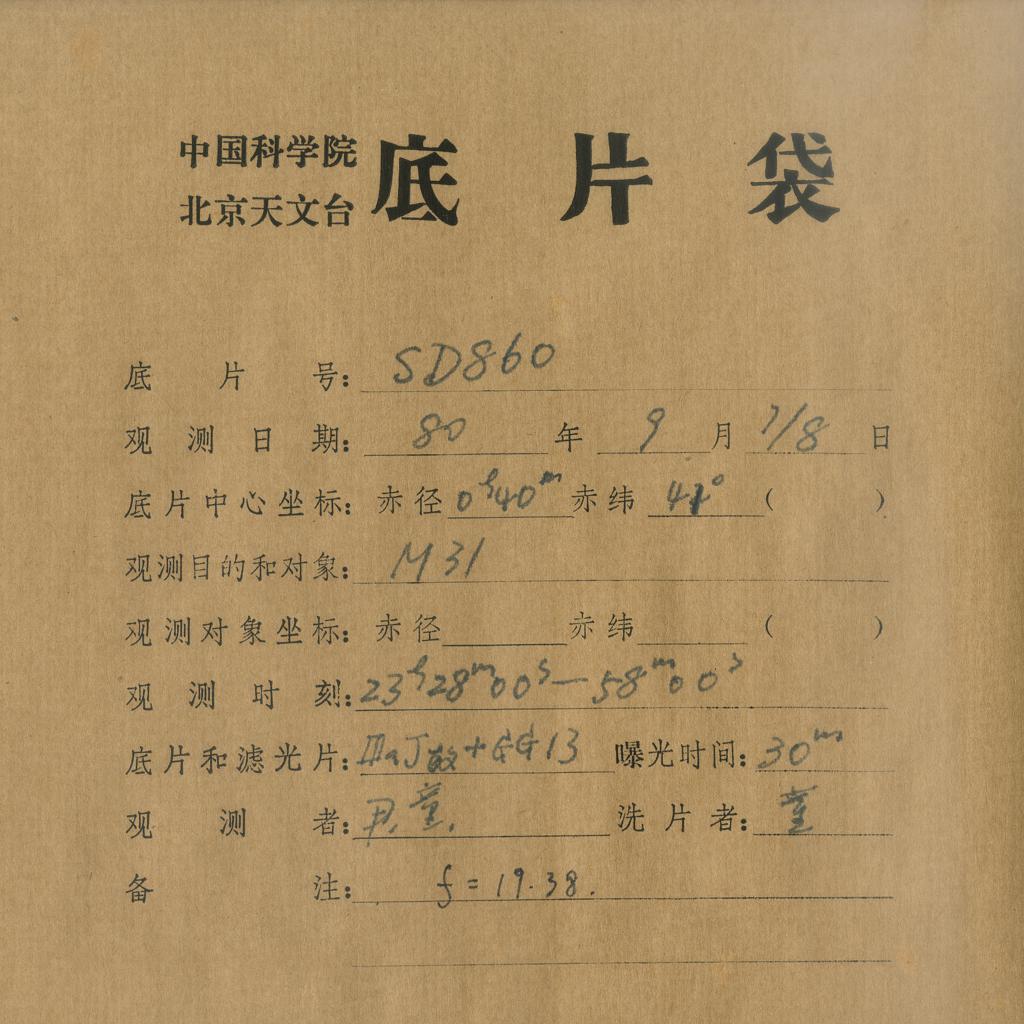 中国科学院
北京天文台
底片袋
底片号: SD860
观测日期: 80 年 9 月 7/8 日
底片中心坐标: 赤径 0h40m 赤纬 41° ( )
观测目的和对象: M31
观测对象坐标: 赤径 赤纬 ( )
观测时刻: 23h28m00s—58m00s
底片和滤光片: IIaJ敏+GG13 曝光时间: 30m
观测者: 尹.童. 洗片者: 童
备注: f=19.38.